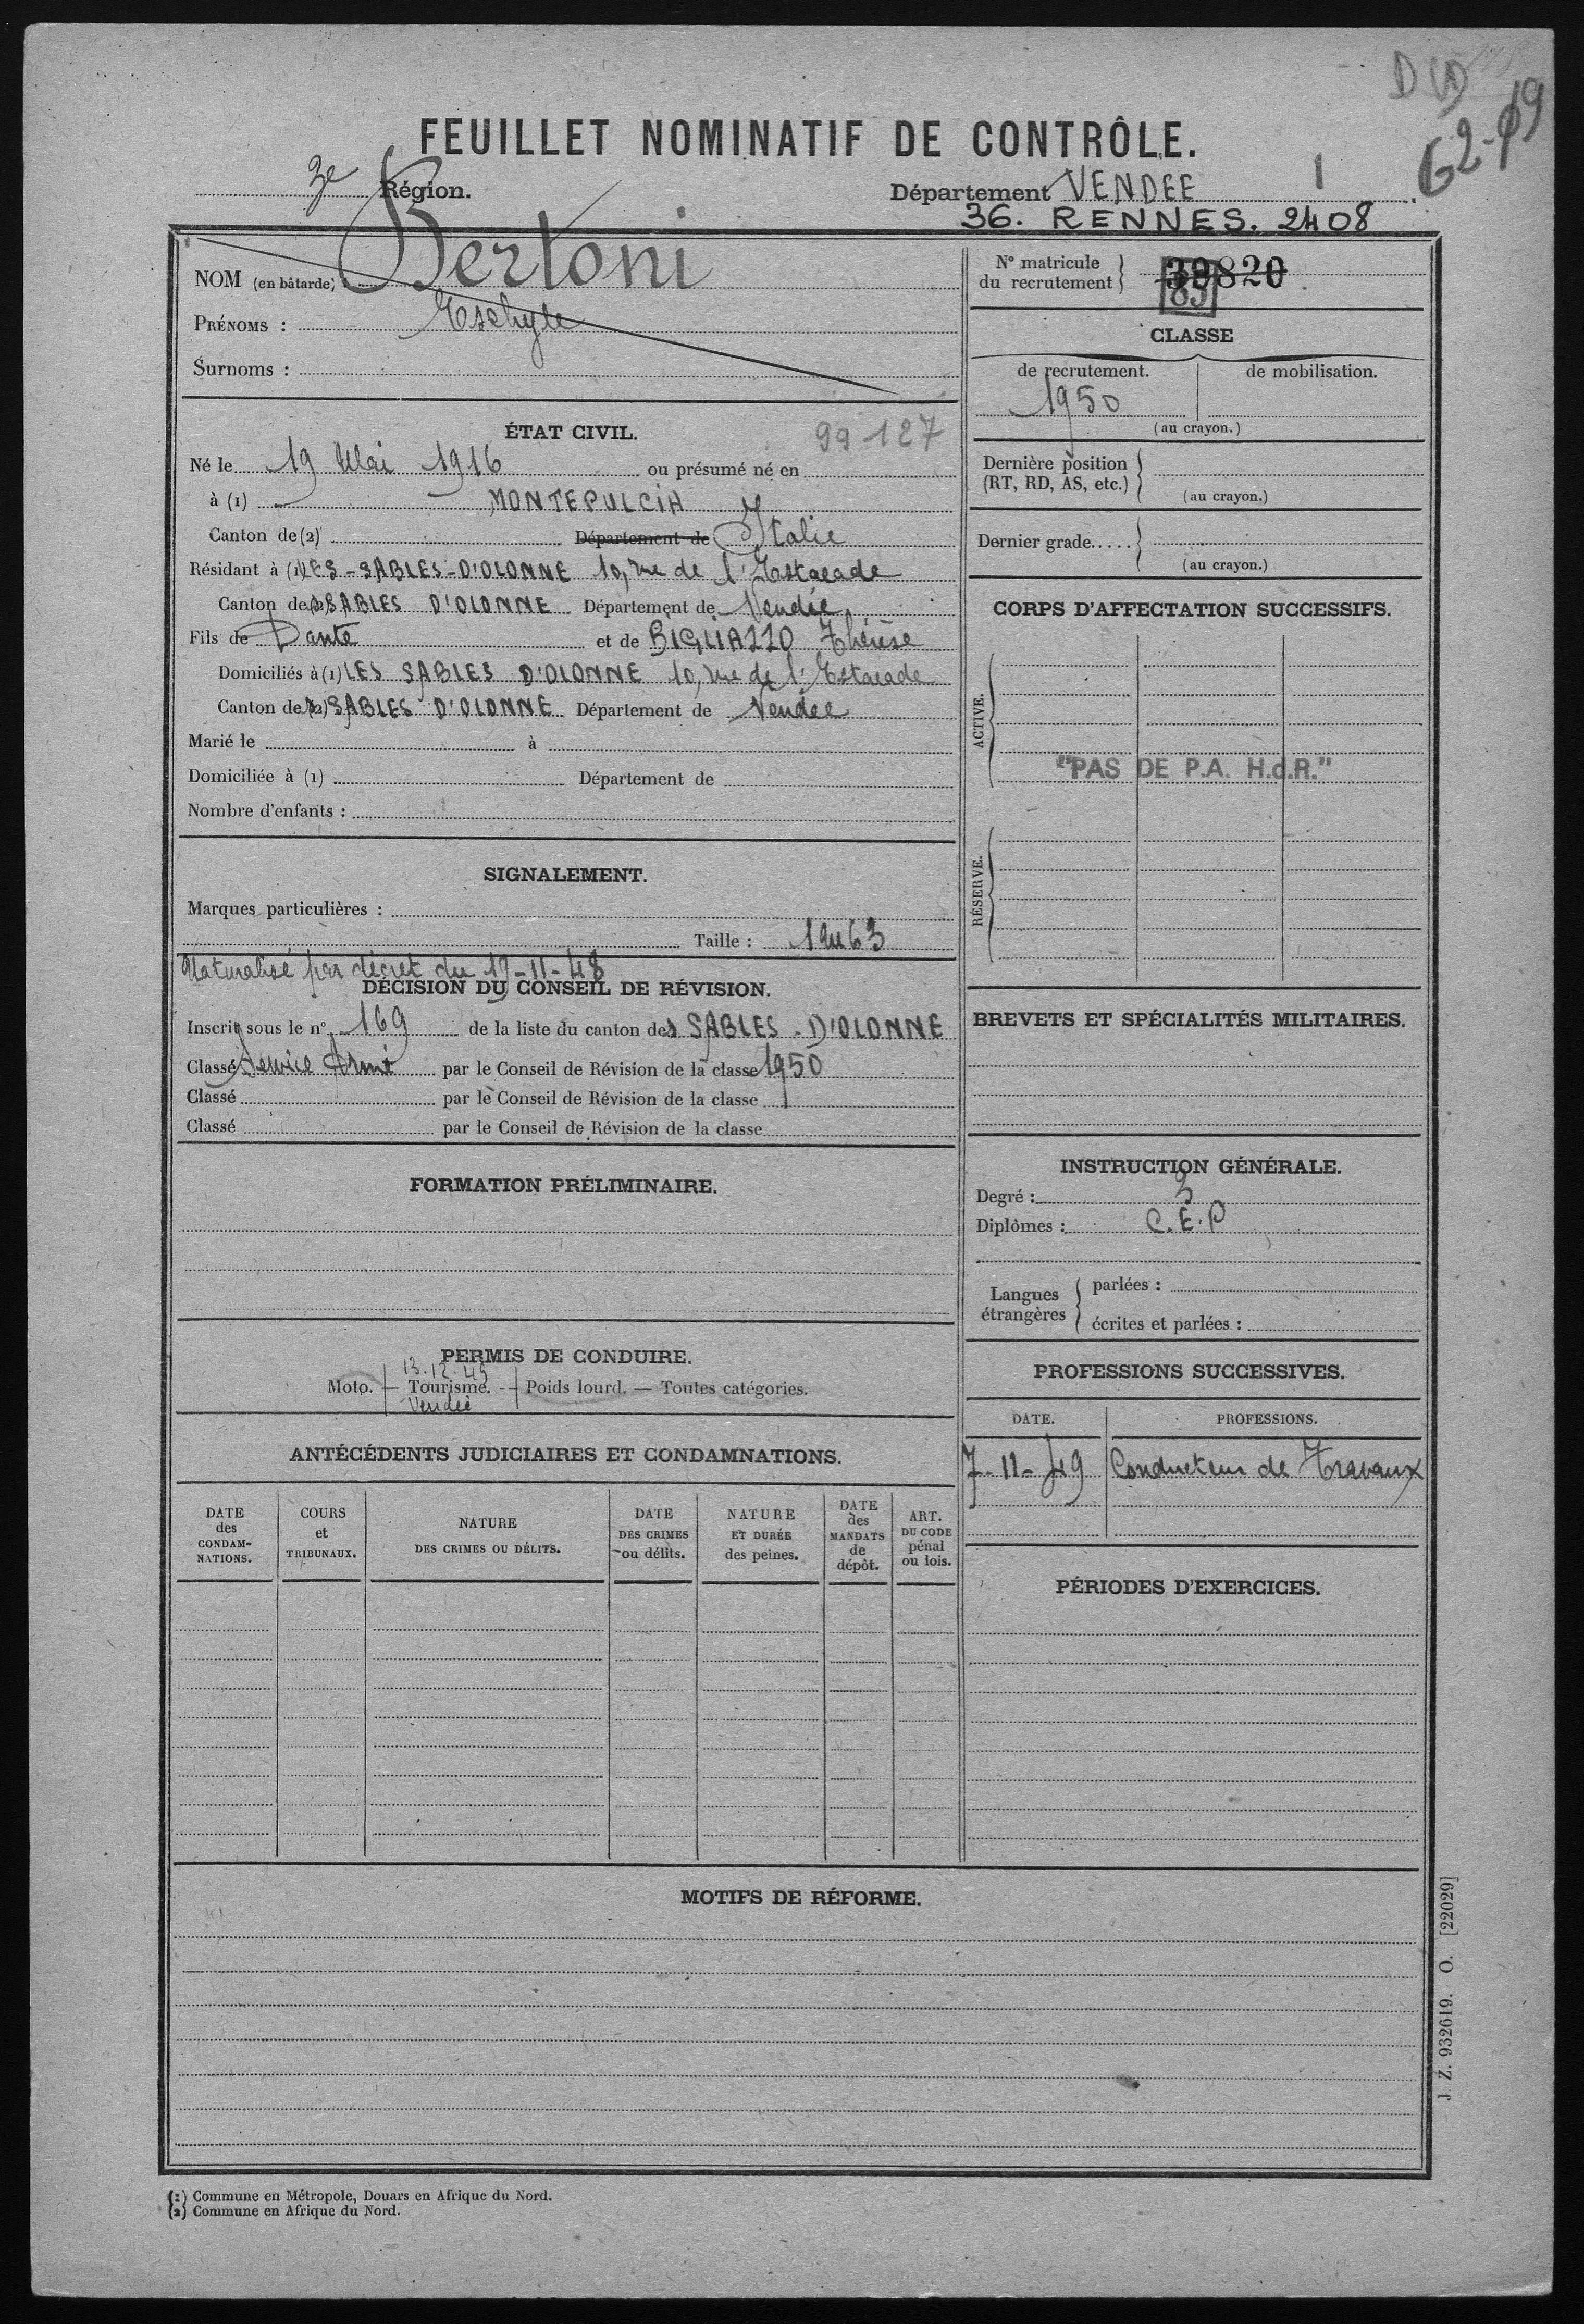 62-49
FEUILLET NOMINATIF DE CONTRÔLE.
3e Région.
Département VENDEE 1
36. RENNES. 2408
NOM (en bâtarde) : Bertoni
PRÉNOMS : Eschyle
Surnoms :
ÉTAT CIVIL.
99-127
Né le 19 Mai 1916 ou présumé né en
à (1) MONTEPULCIA
Canton de (2) Département de Italie
Résidant à (1) LES-SABLES-D'OLONNE 10, rue de l'Estacade
Canton des SABLES D'OLONNE Département de Vendée
Fils de Dante et de BIGLIAZZO Thérèse
Domiciliés à (1) LES SABLES D'OLONNE 10, rue de l'Estacade
Canton des SABLES D'OLONNE Département de Vendée
Marié le à
Domiciliée à (1) Département de
Nombre d'enfants :
SIGNALEMENT.
Marques particulières :
Taille : 1m63
Naturalisé par décret du 17-11-48
DÉCISION DU CONSEIL DE RÉVISION.
Inscrit sous le n° 169 de la liste du canton des SABLES-D'OLONNE
Classé Service Armé par le Conseil de Révision de la classe 1950
Classé par le Conseil de Révision de la classe
Classé par le Conseil de Révision de la classe
FORMATION PRÉLIMINAIRE.
PERMIS DE CONDUIRE.
13.12.45
Moto. — Tourisme. — Poids lourd. — Toutes catégories.
Vendée
ANTÉCÉDENTS JUDICIAIRES ET CONDAMNATIONS.
DATE des CONDAMNATIONS.
COURS et TRIBUNAUX.
NATURE DES CRIMES OU DÉLITS.
DATE DES CRIMES ou délits.
NATURE ET DURÉE des peines.
DATE des MANDATS de dépôt.
ART. DU CODE pénal ou lois.
N° matricule du recrutement 39820
85
CLASSE
de recrutement. de mobilisation.
1950
(au crayon.)
Dernière position
(RT, RD, AS, etc.)
(au crayon.)
Dernier grade.....
(au crayon.)
CORPS D'AFFECTATION SUCCESSIFS.
ACTIVE.
"PAS DE P.A. H.d.R."
RÉSERVE.
BREVETS ET SPÉCIALITÉS MILITAIRES.
INSTRUCTION GÉNÉRALE.
Degré : 3
Diplômes : C.E.P
Langues étrangères
parlées :
écrites et parlées :
PROFESSIONS SUCCESSIVES.
DATE. PROFESSIONS.
7-11-49 Conducteur de Travaux
PÉRIODES D'EXERCICES.
MOTIFS DE RÉFORME.
J Z. 932619. O. [22029]
(1) Commune en Métropole, Douars en Afrique du Nord.
(2) Commune en Afrique du Nord.